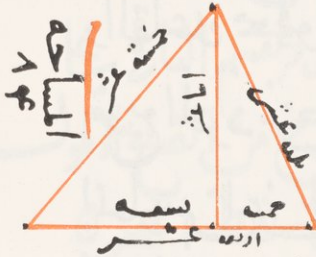 المساحه
٨٤
خمسة عشر
ثلثه عشر
تسعه
خمسه
اربعه عشر